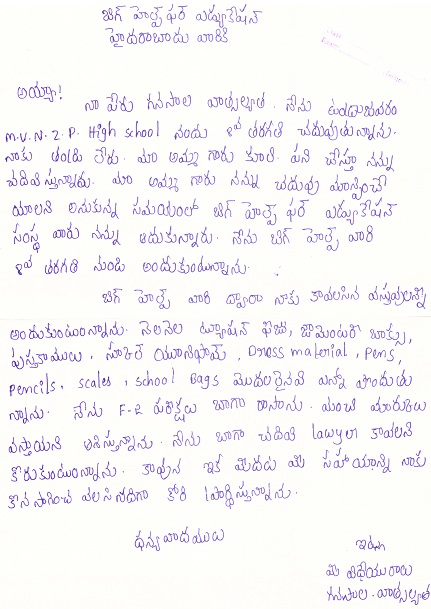 బిగ్ హెల్ప్ ఫర్ ఎడ్యుకేషన్
హైదరాబాదు వారికి
అయ్యా!
నా పేరు గనసాల వాత్సల్యత. నేను ఉండ్రుజవరం
M.V.N.Z.P. High school నందు 8వ తరగతి చదువుతున్నాను.
నాకు తండ్రి లేరు. మా అమ్మ గారు కూలి పని చేస్తూ నన్ను
చదివిస్తున్నారు. మా అమ్మ గారు నన్ను చదువు మాన్పించే
యాలని అనుకున్న సమయంలో బిగ్ హెల్ప్ ఫర్ ఎడ్యుకేషన్
సంస్థ వారు నన్ను ఆదుకున్నారు. నేను బిగ్ హెల్ప్ వారి
8వ తరగతి నుండి అందుకుంటున్నాను.
బిగ్ హెల్ప్ వారి ద్వారా నాకు కావలసిన వస్తువులన్నీ
అందుకుంటున్నాను. నెలనెల ట్యూషన్ ఫీజు, జామెంటరీ బాక్సు,
పుస్తకాములు, స్కూల్ యూనిఫామ్, Dress material, Pens,
Pencils, scales, school Bags మొదలైనవి ఎన్నో పొందుతు
న్నాను. నేను F-2 పరీక్షలు బాగా రాసాను. మంచి మార్కులు
వస్తాయని ఆశిస్తున్నాను. నేను బాగా చదివి lawyer కావలని
కోరుకుంటున్నాను. కావున ఇక మీదట మీ సహాయాన్ని నాకు
కొనసాగించ వలసినదిగా కోరి ప్రార్థిస్తున్నాను.
ధన్యవాదములు
ఇట్లు
మీ విధేయురాలు
గనసాల. వాత్సల్యత